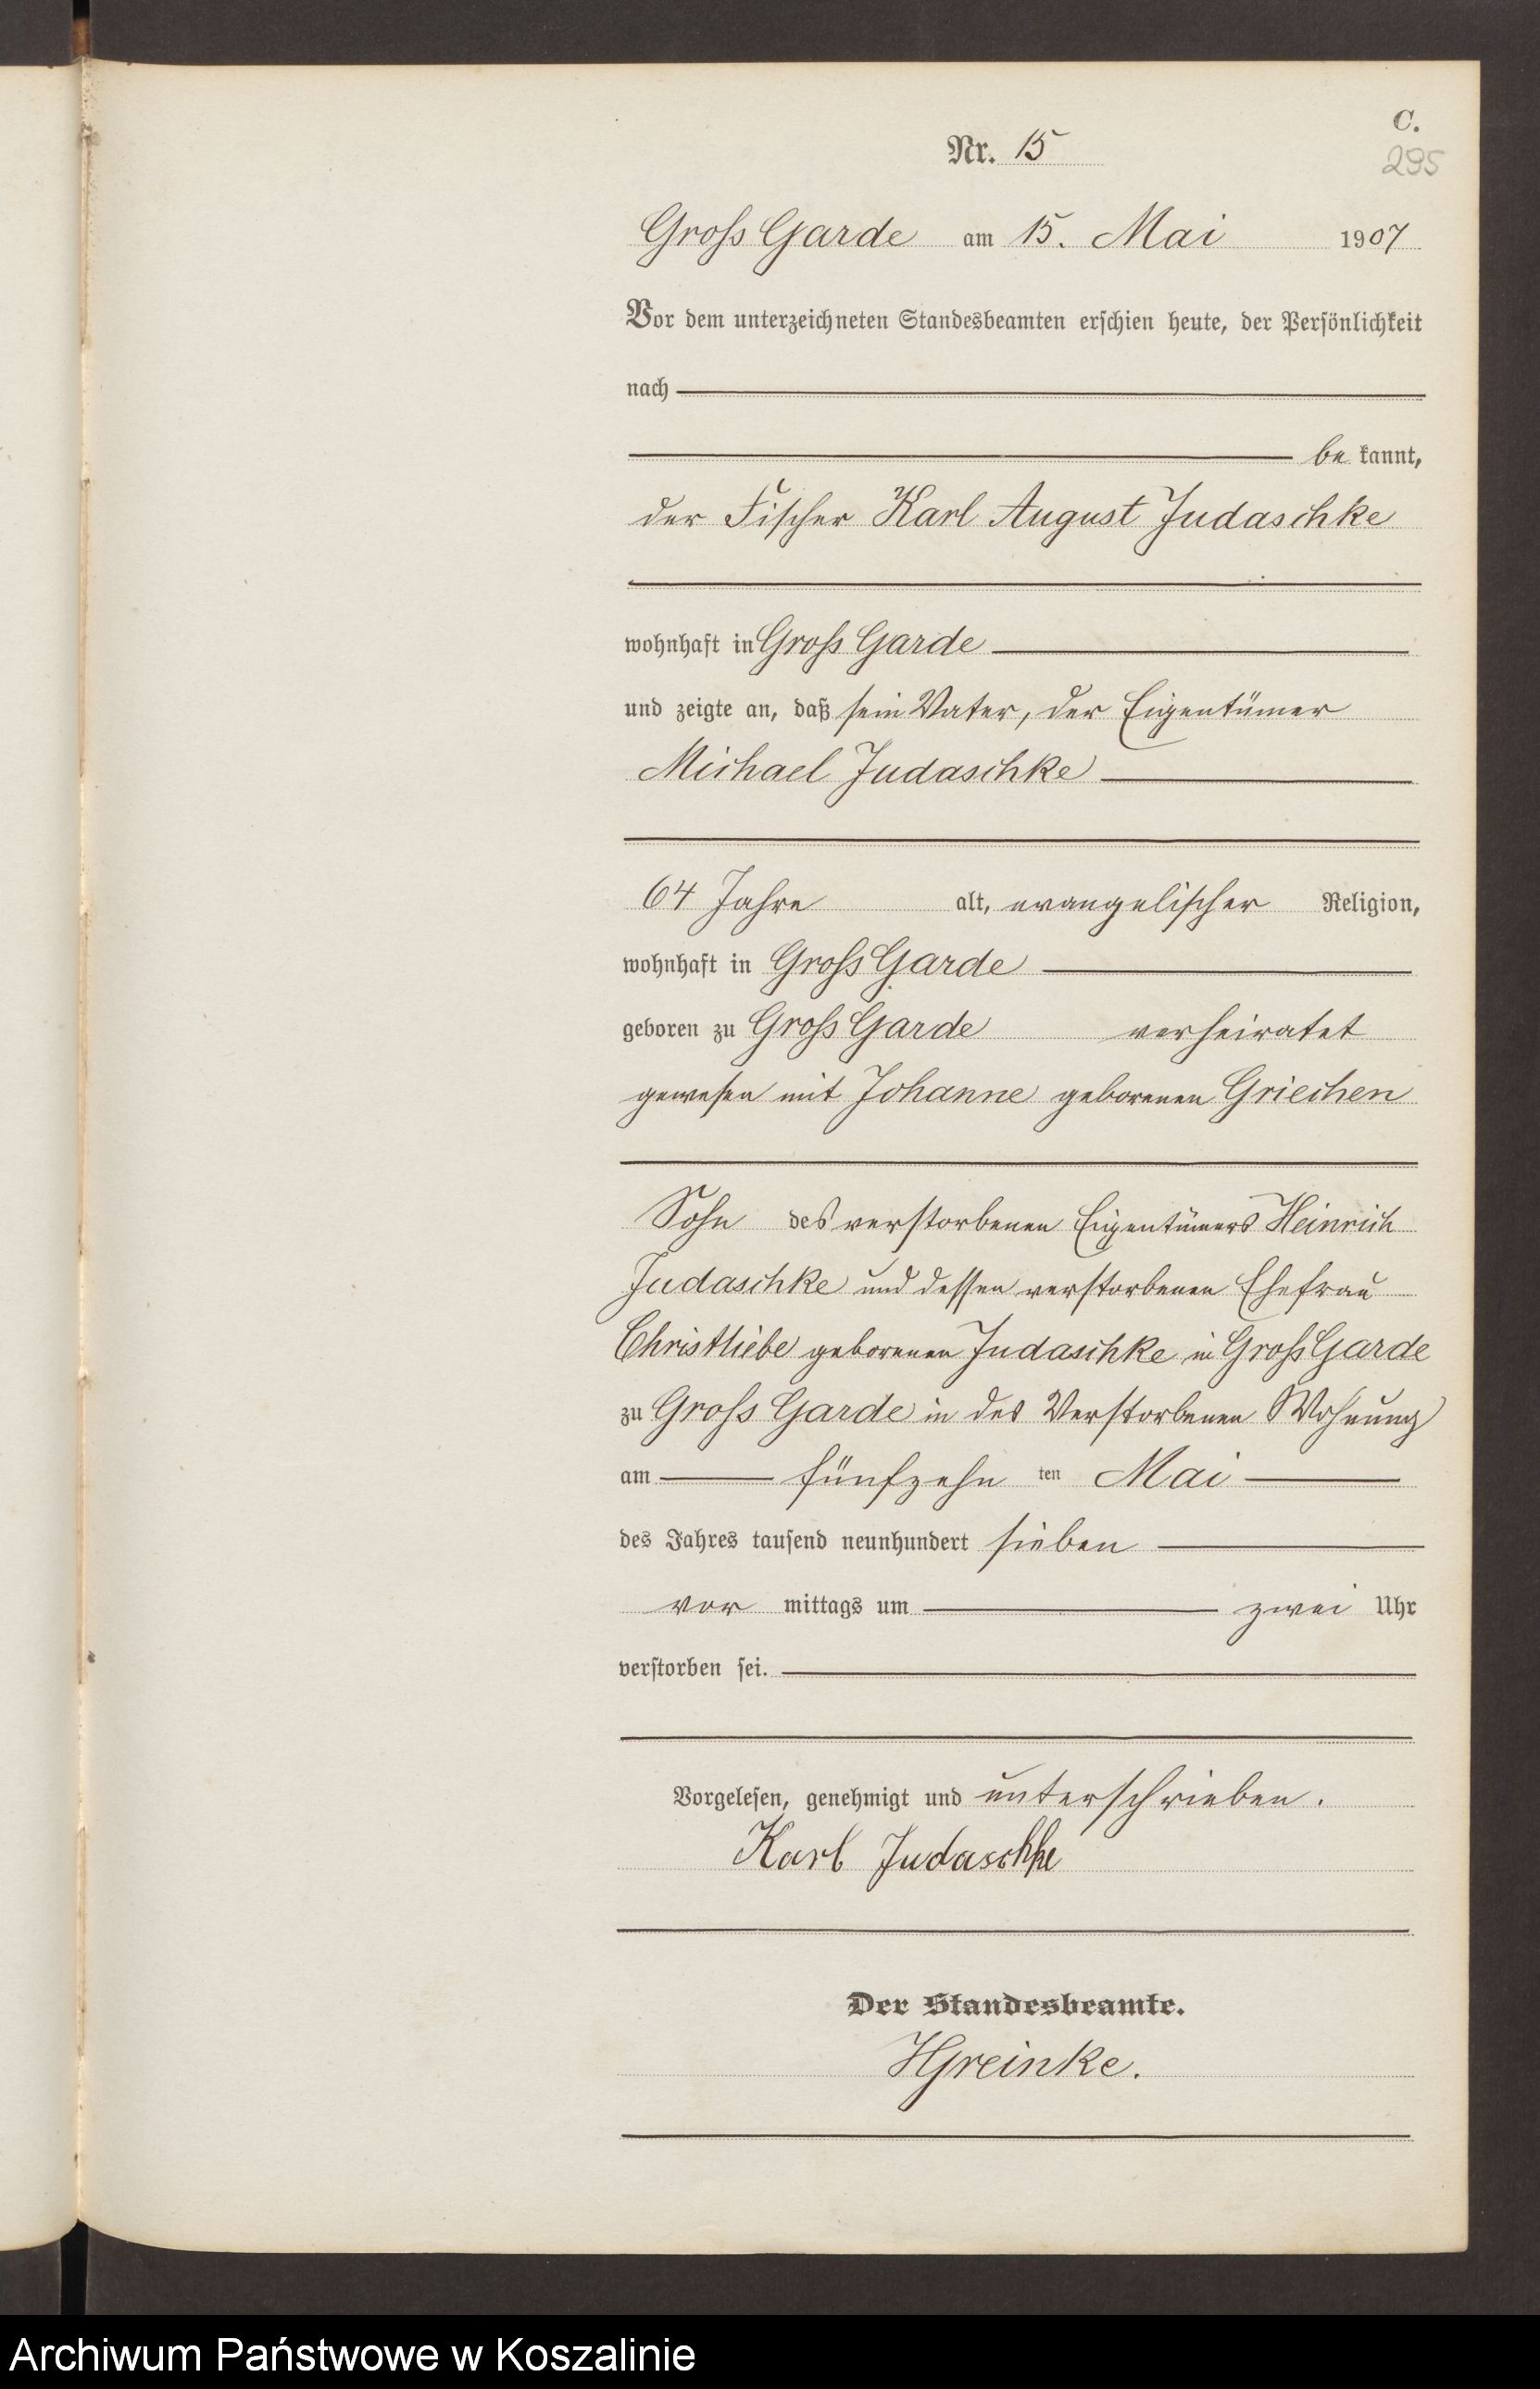 C.
Nr. 15
295
Gross Garde am 15. Mai 1907
Vor dem unterzeichneten Standesbeamten erschien heute, der Persönlichkeit
nach
be kannt,
der Fischer Karl August Judaschke
wohnhaft in Gross Garde
und zeigte an, daß sein Vater, der Eigentümer
Michael Judaschke
64 Jahre alt, evangelischer Religion,
wohnhaft in Gross Garde
geboren zu Gross Garde verheiratet
gewesen mit Johanne geborenen Griechen
Sohn des verstorbenen Eigentümers Heinrich
Judaschke und dessen verstorbenen Ehefrau
Christliebe geborenen Judaschke in Gross Garde
zu Gross Garde in des Verstorbenen Wohnung
am fünfzehn ten Mai
des Jahres tausend neunhundert sieben
vor mittags um zwei Uhr
verstorben sei.
Vorgelesen, genehmigt und unterschrieben.
Karl Judaschke
Der Standesbeamte.
HGreinke.
Archiwum Państwowe w Koszalinie